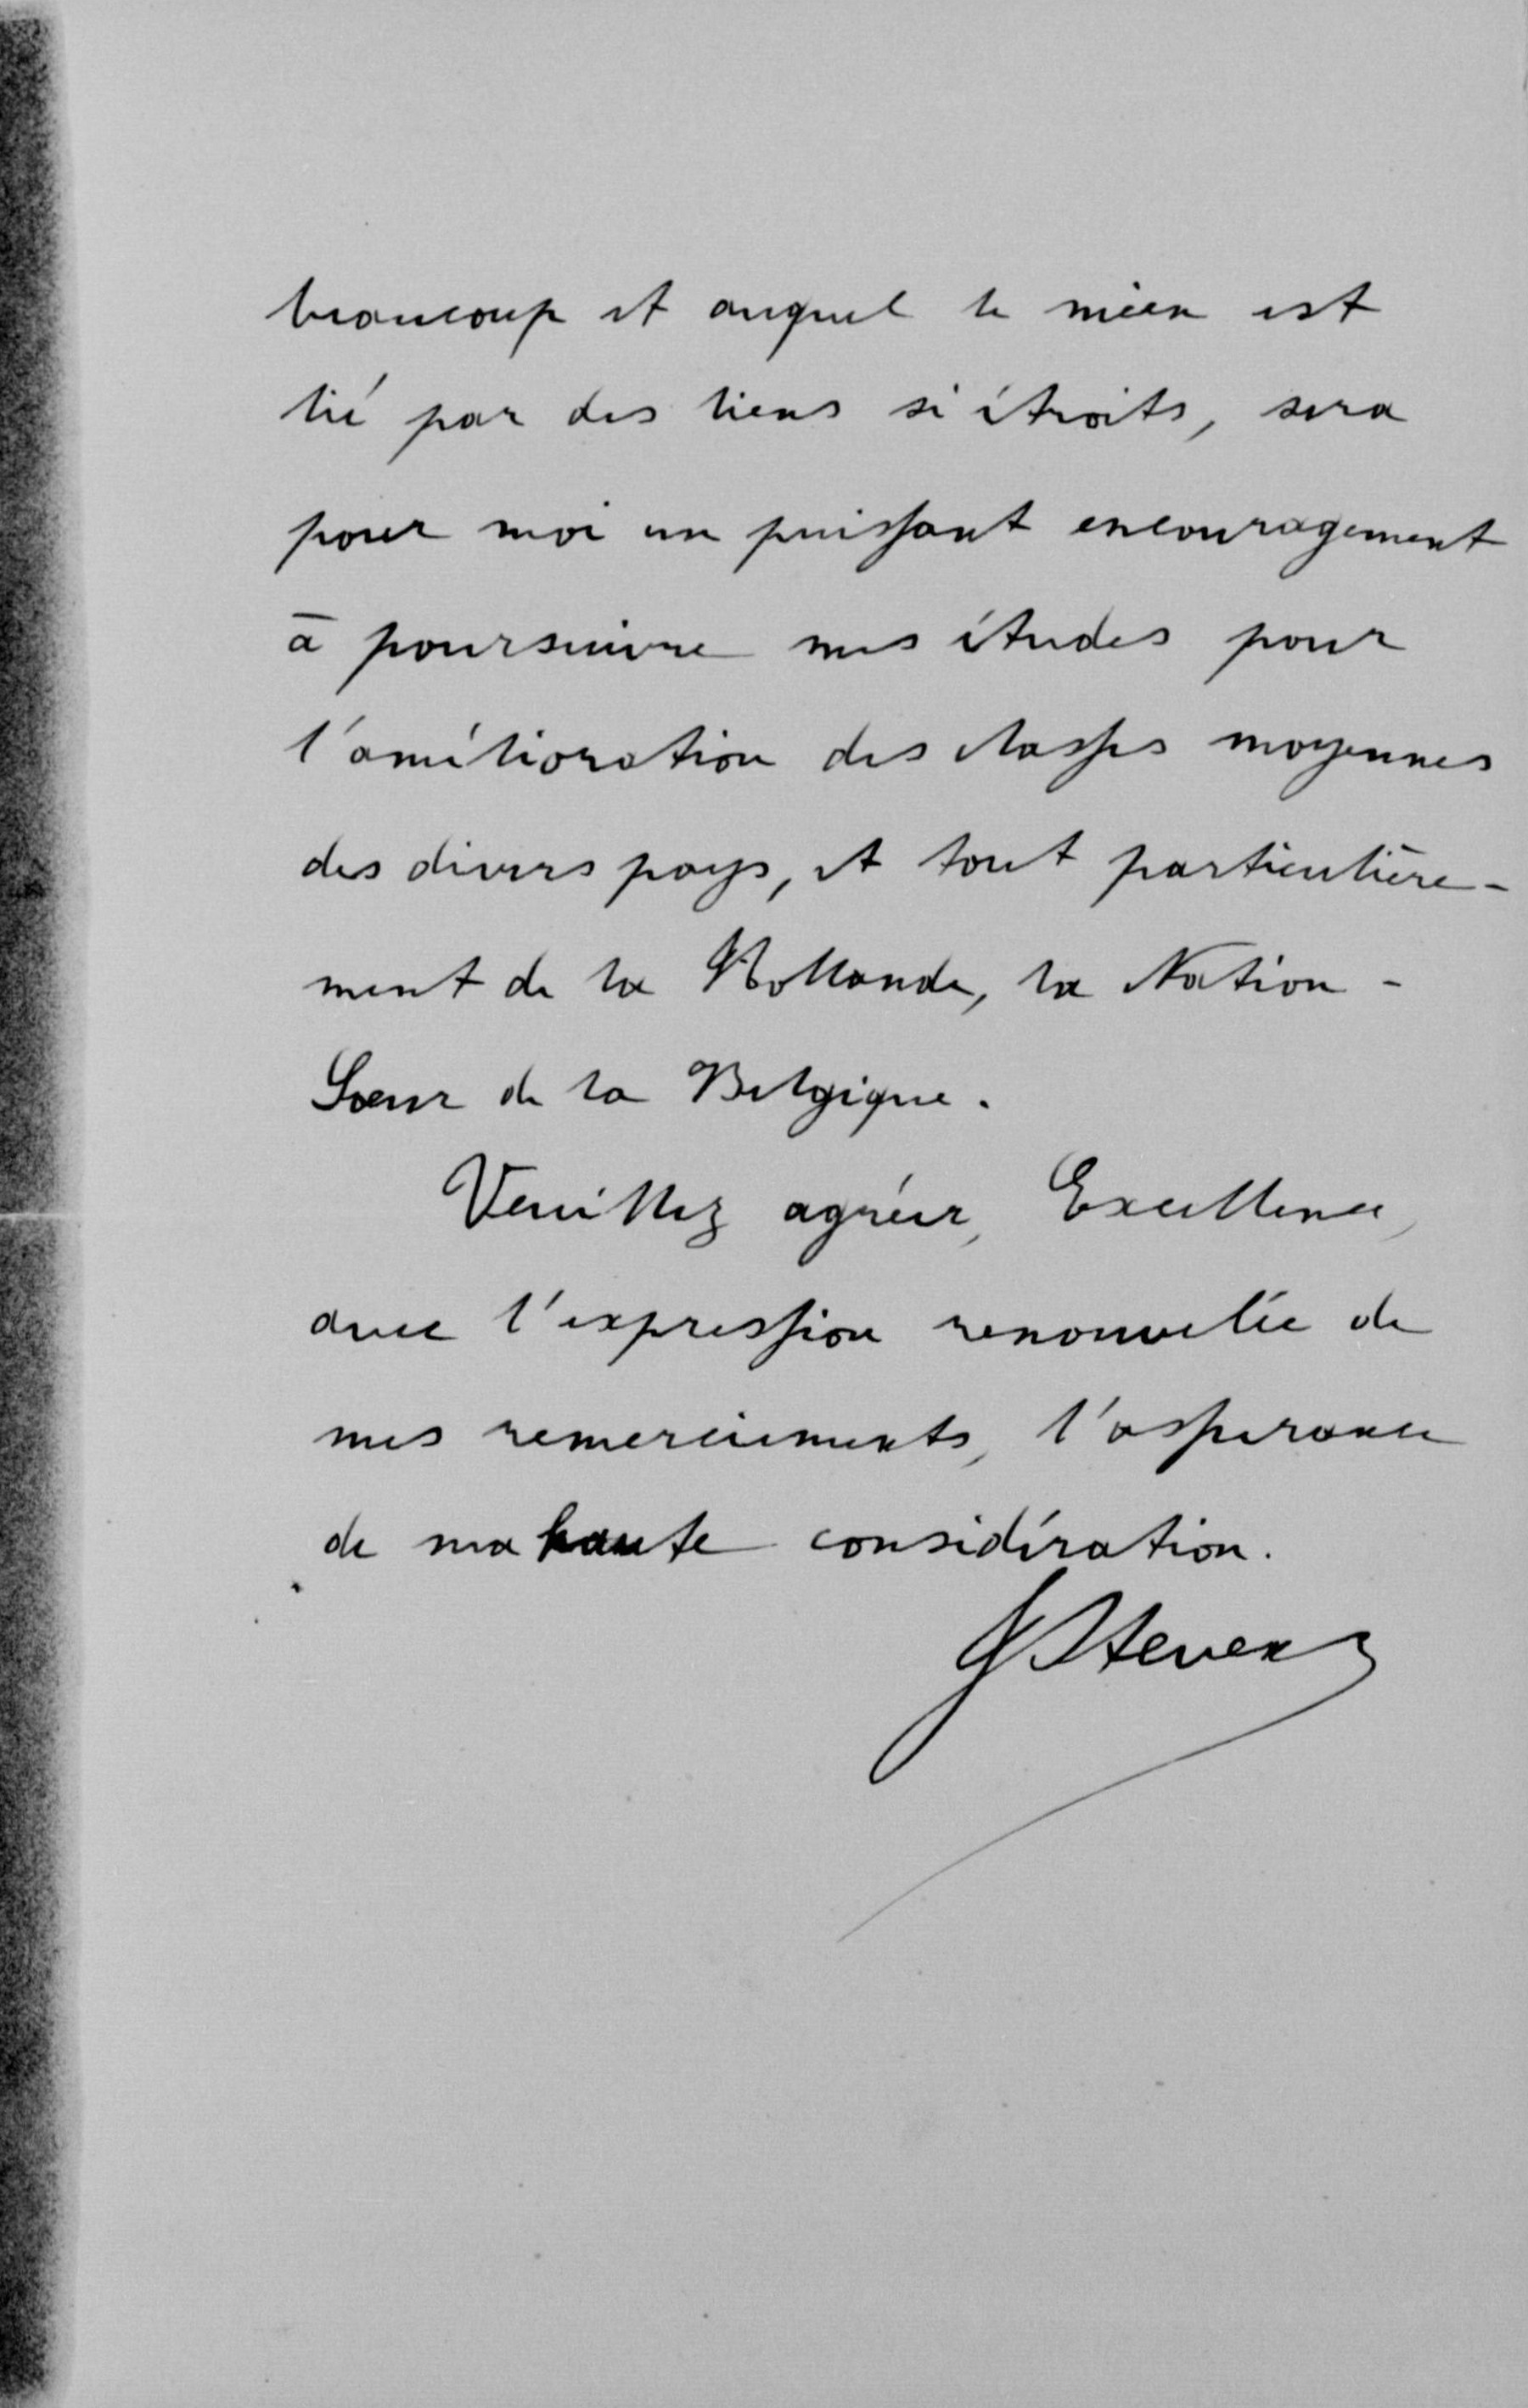 beaucoup et auquel le mien est
lié par des liens si étroits, sera
pour moi un puissant encouragement
à poursuivre mes études pour
l'amélioration des classes moyennes
des divers pays, et tout particulière-
ment de la Hollande, la Nation-
Sœur de la Belgique.
Veuillez agréer, Excellence,
avec l'expression renouvelée de
mes remerciements, l'assurance
de ma haute considération.
Stevens